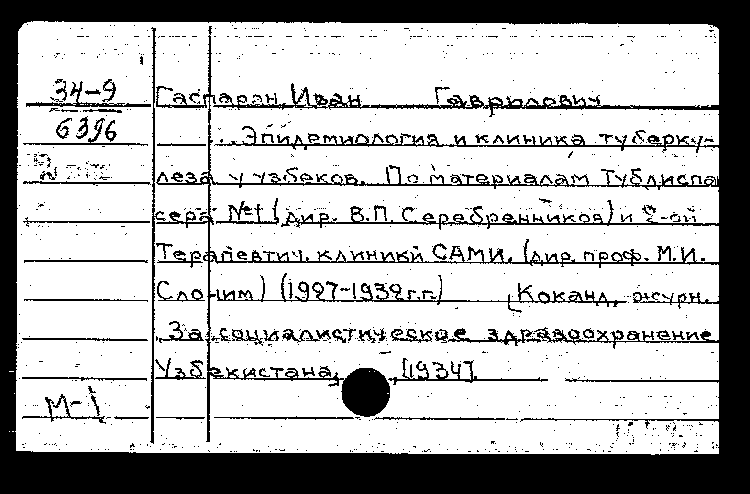 34-9
6396
Гаспарян, Иван Гаврилович
Эпидемиология и клиника туберку-
леза у узбеков. По материалам Тубдиспа
сера №1 (дир. В.П. Серебренников) и 2-ой
Терапевтич. клиники САМИ. (дир. проф. М.И.
Слоним) (1927-1932 г.г.) [Коканд, журн.
"За социалистическое здравоохранение
Узбекистана", [1934].
М-1